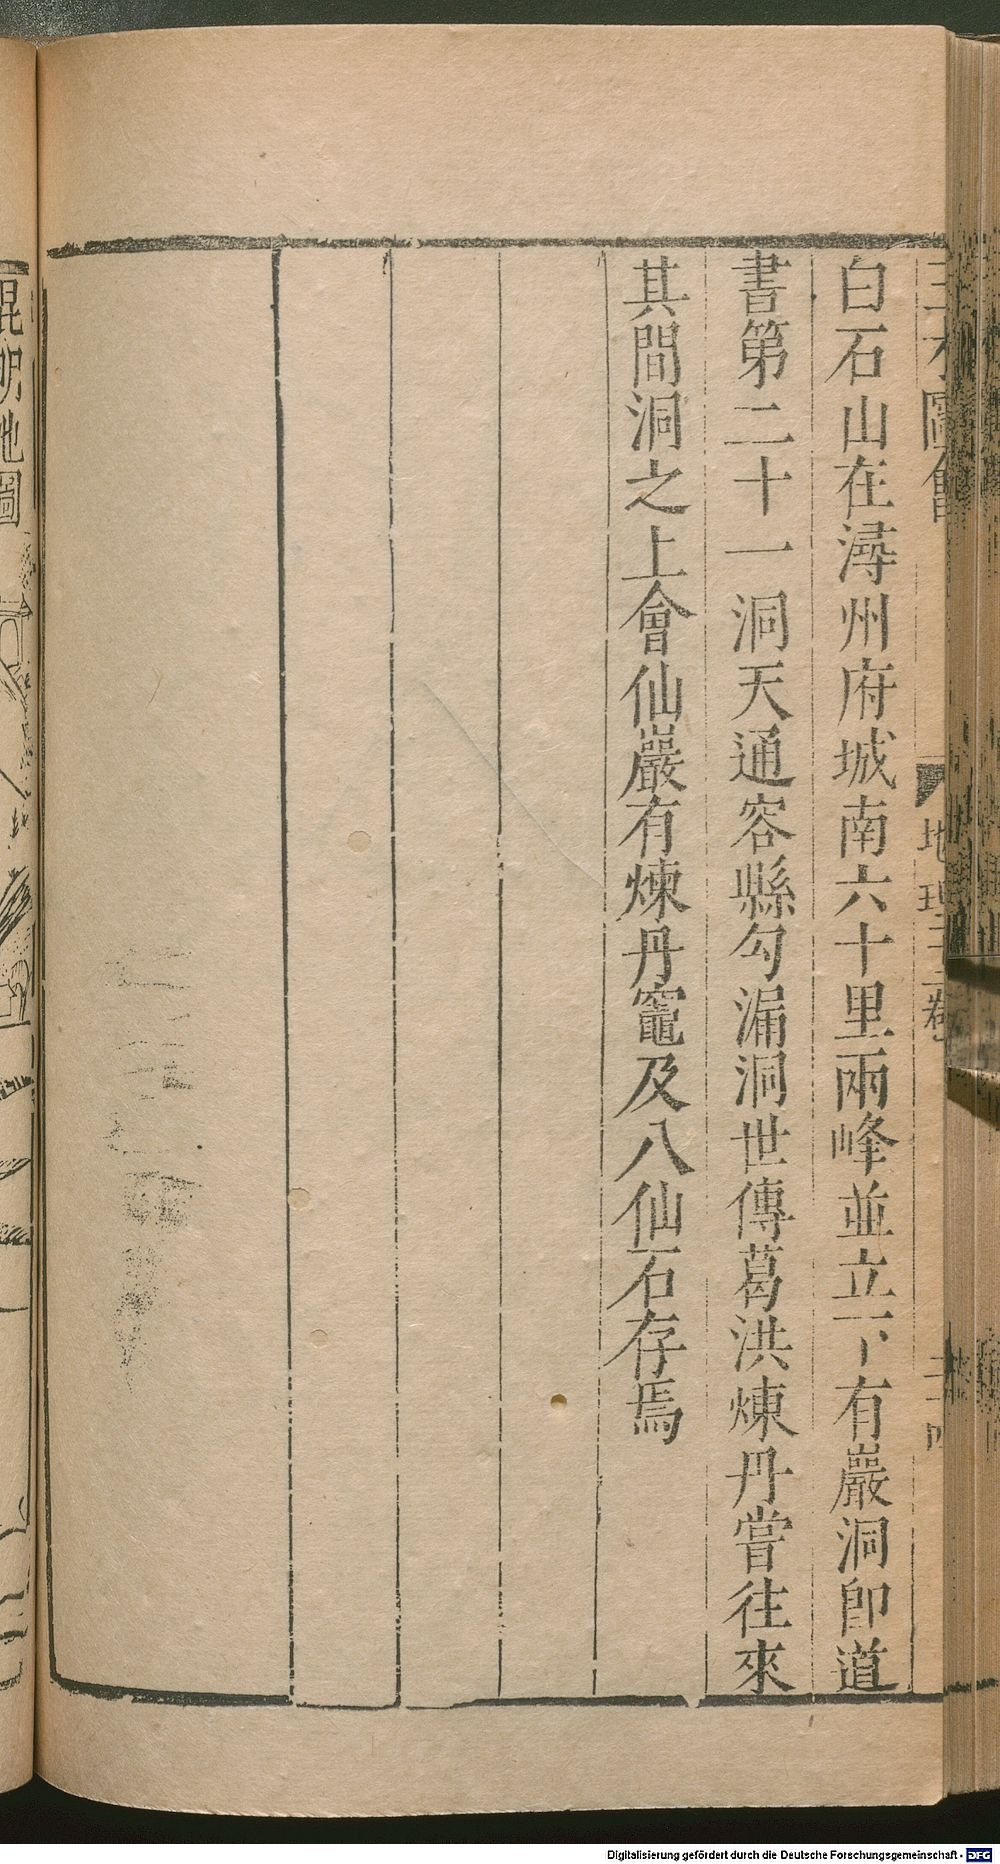 三才圖會
地理三卷
白石山在潯州府城南六十里兩峰並立下有巖洞卽道
書第二十一洞天通容縣勾漏洞世傳葛洪煉丹嘗往來
其間洞之上會仙巖有煉丹竈及八仙石存焉
昆明池圖
Digitalisierung gefördert durch die Deutsche Forschungsgemeinschaft - DFG